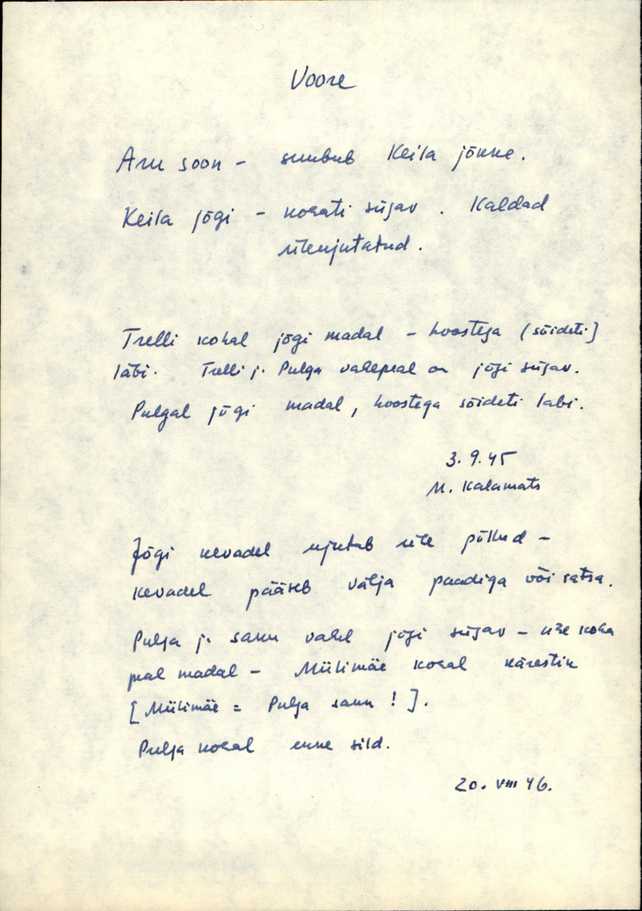 Voore
Aru soon – suubub Keila jõkke.
Keila jõgi – kohati sügav. Kaldad
üleujutatud.
Trelli kohal jõgi madal – hoostega (sõideti]
läbi. Trelli j. Pulga vahepeal on jõgi sügav.
Pulgal jõgi madal, hoostega sõideti läbi.
3.9.45
M. Kalamats
Jõgi kevadel ujutab üle põllud –
kevadel pääseb välja paadiga või ratsa.
Pulga j. sauu vahel jõgi sügav – ühe koha
peal madal – Mülimäe kohal kärestik
[Mülimäe = Pulga sauu!].
Pulga kohal enne sild.
20. VIII 46.